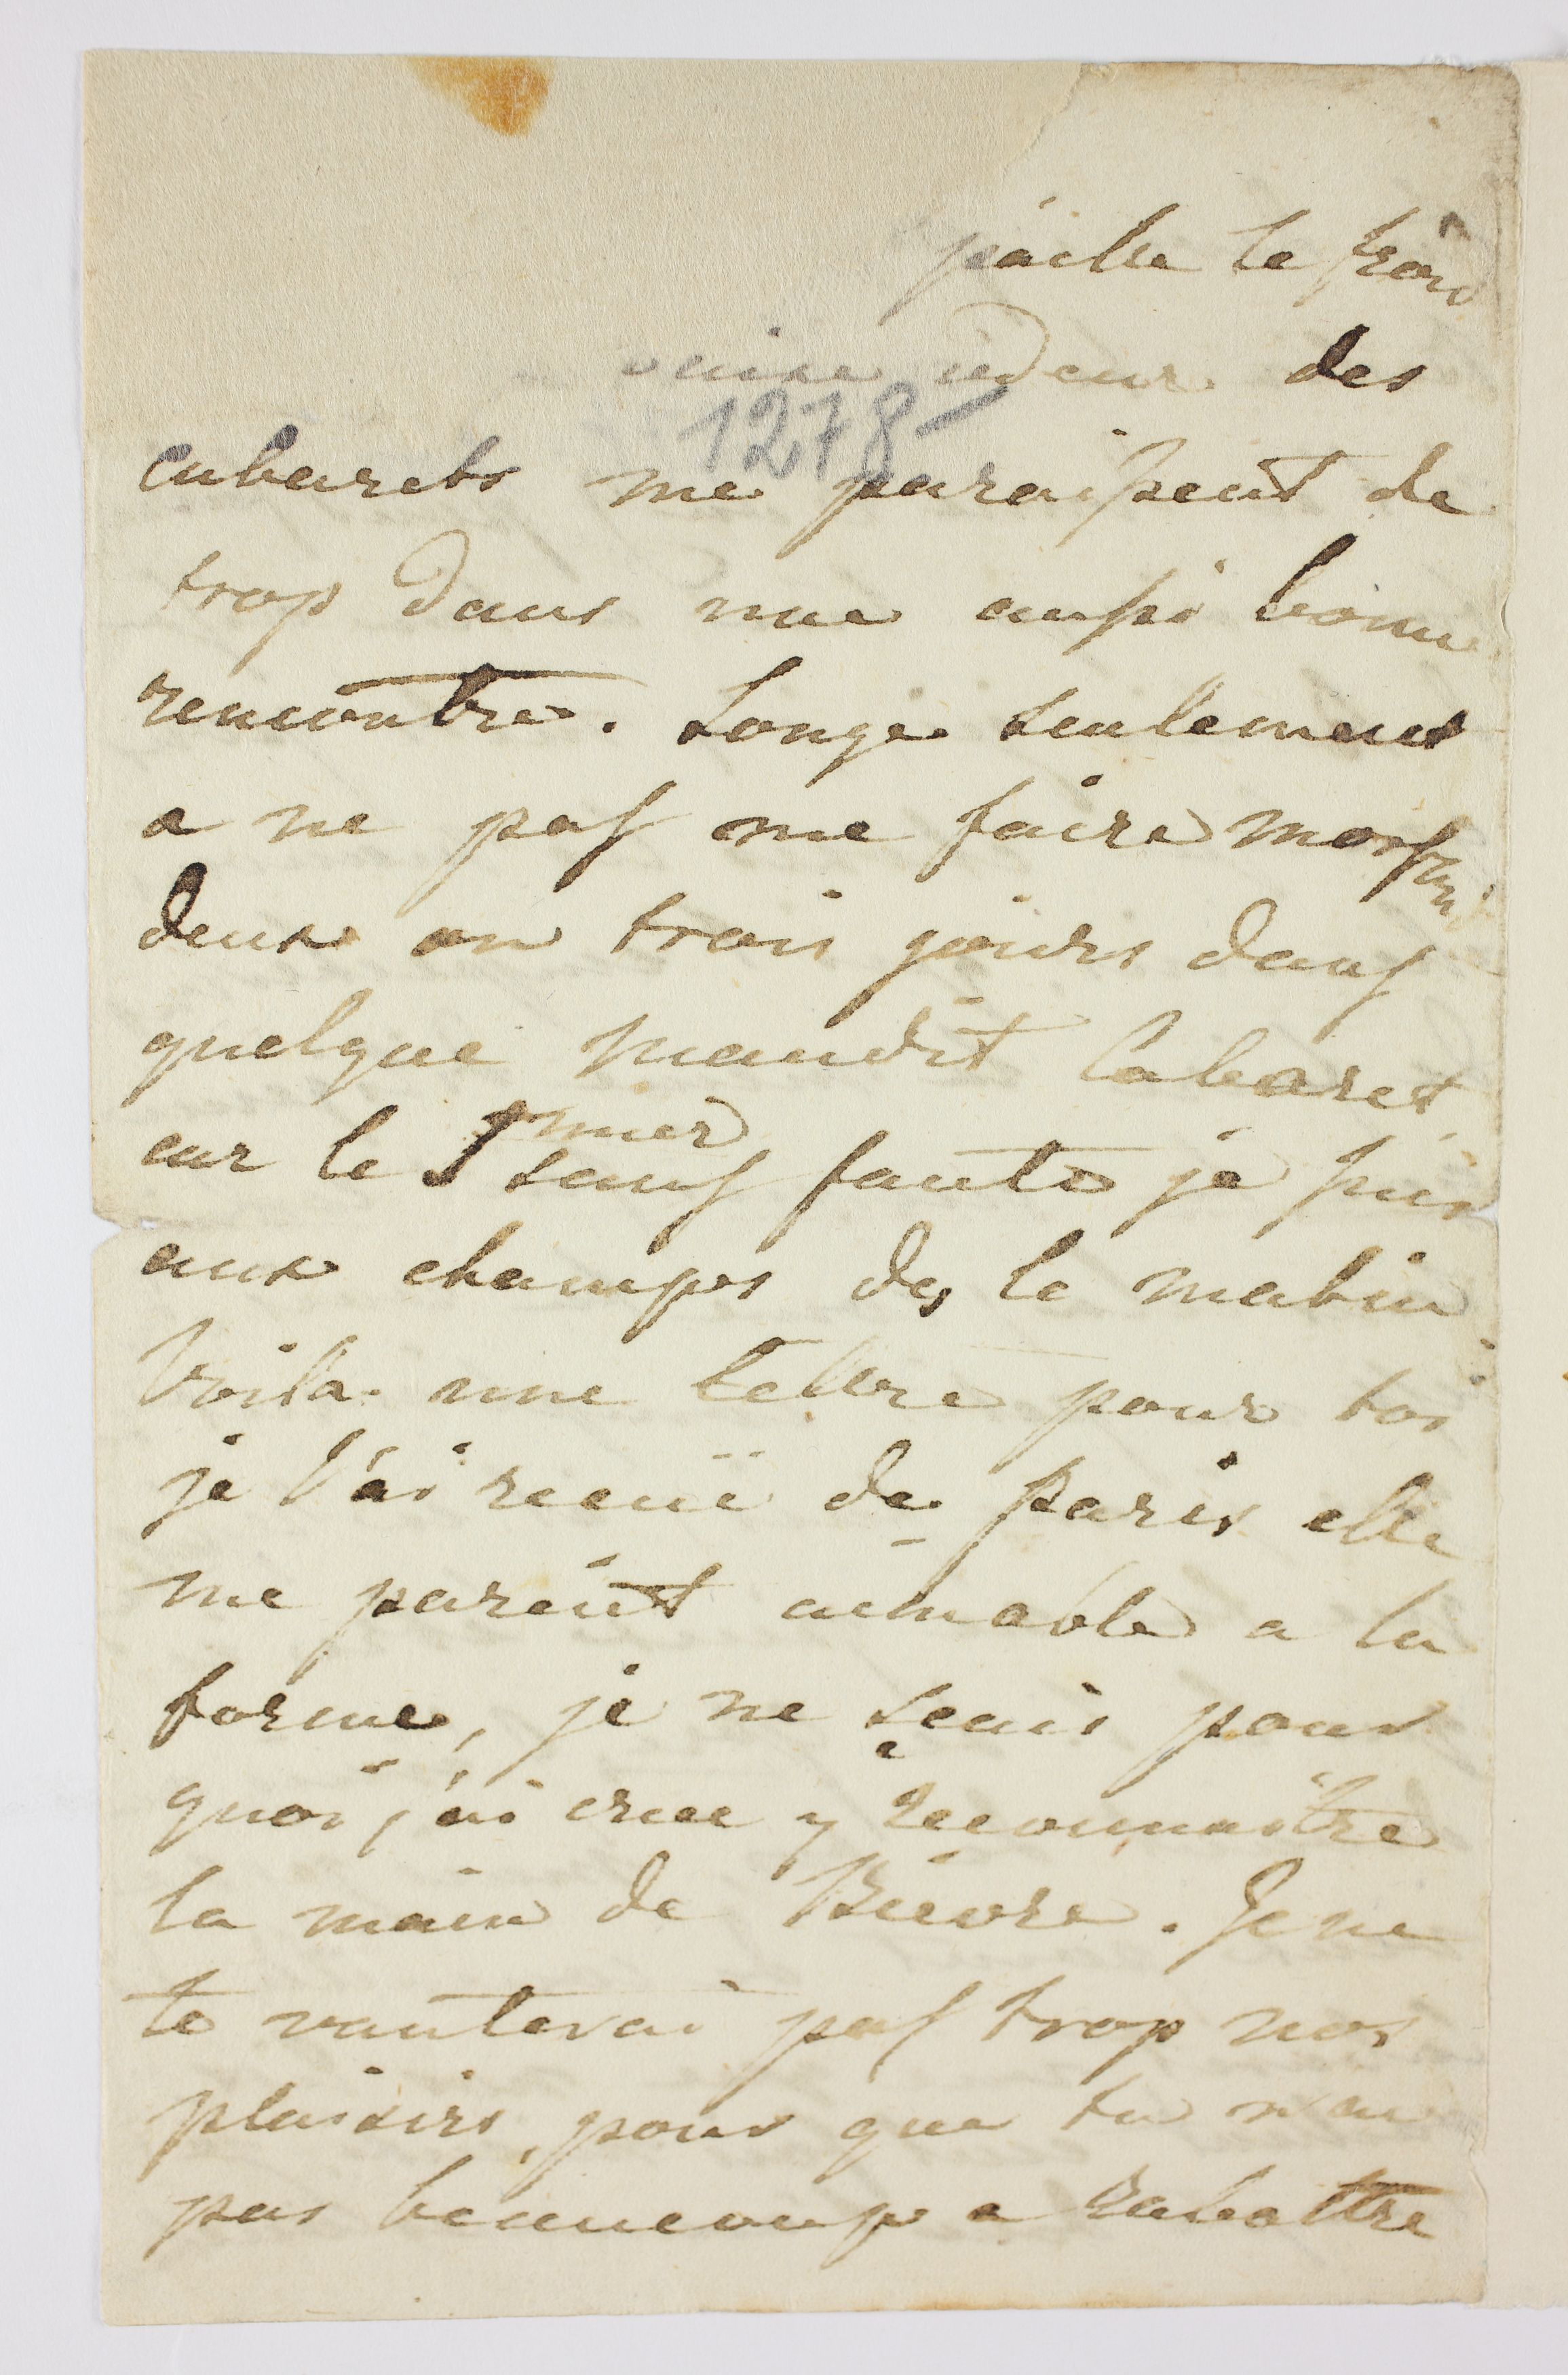 paille le froid
vaise odeur des
1278
cabarets me paraissent de
trop dans une aussi bonne
rencontre. Songe seulement
a ne pas me faire
deux ou trois jours dans
quelque maudit Cabaret
car le 1mier sans faute je suis
aux champs des le matin
Voila une lettre pour toi
je l'ai recuë de paris elle
me parait aimable a la
forme, je ne sçais pour
quoi j'ai crue y reconnaitre
la main de Bievre. Je ne
te vanterai pas trop nos
plaisirs, pour que tu
pas beaucoup a rabattre